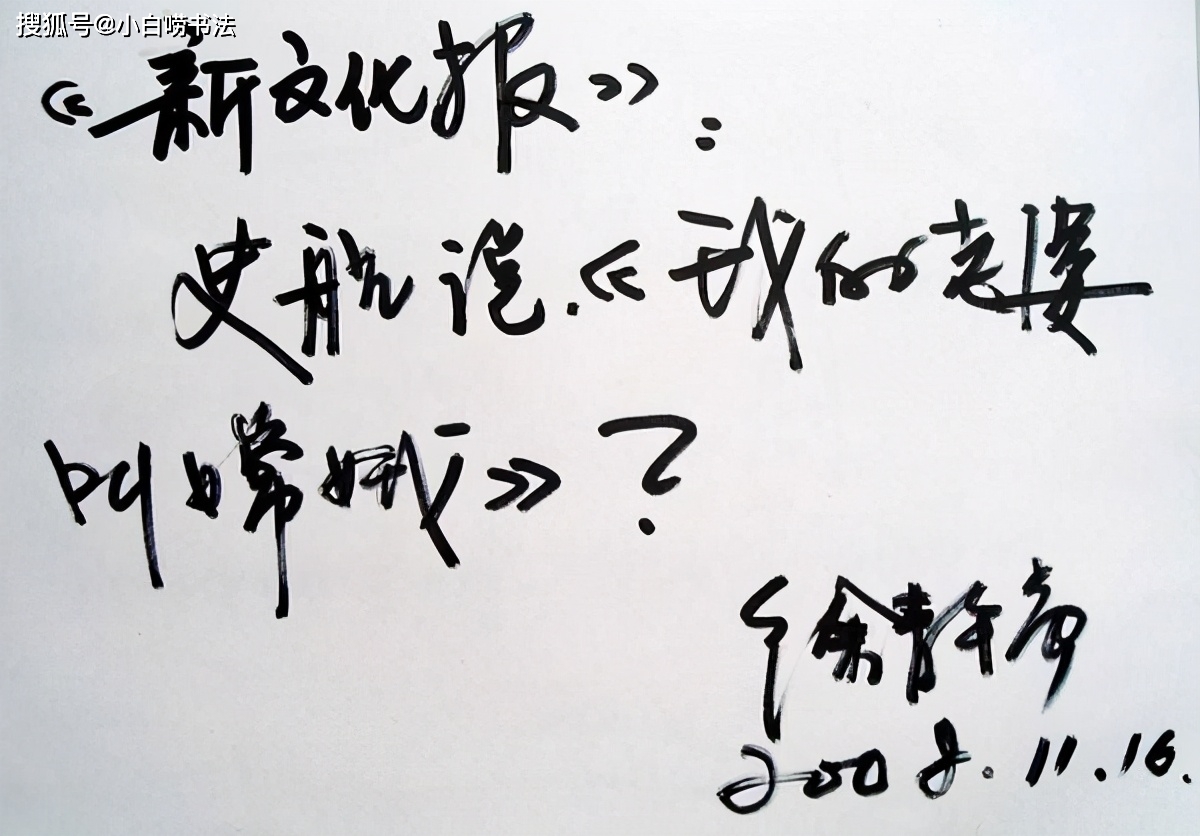 搜狐号@小白唠书法
《新文化报》:
史航说.《我的老婆
叫嫦娥》?
徐静蕾
2008.11.16.